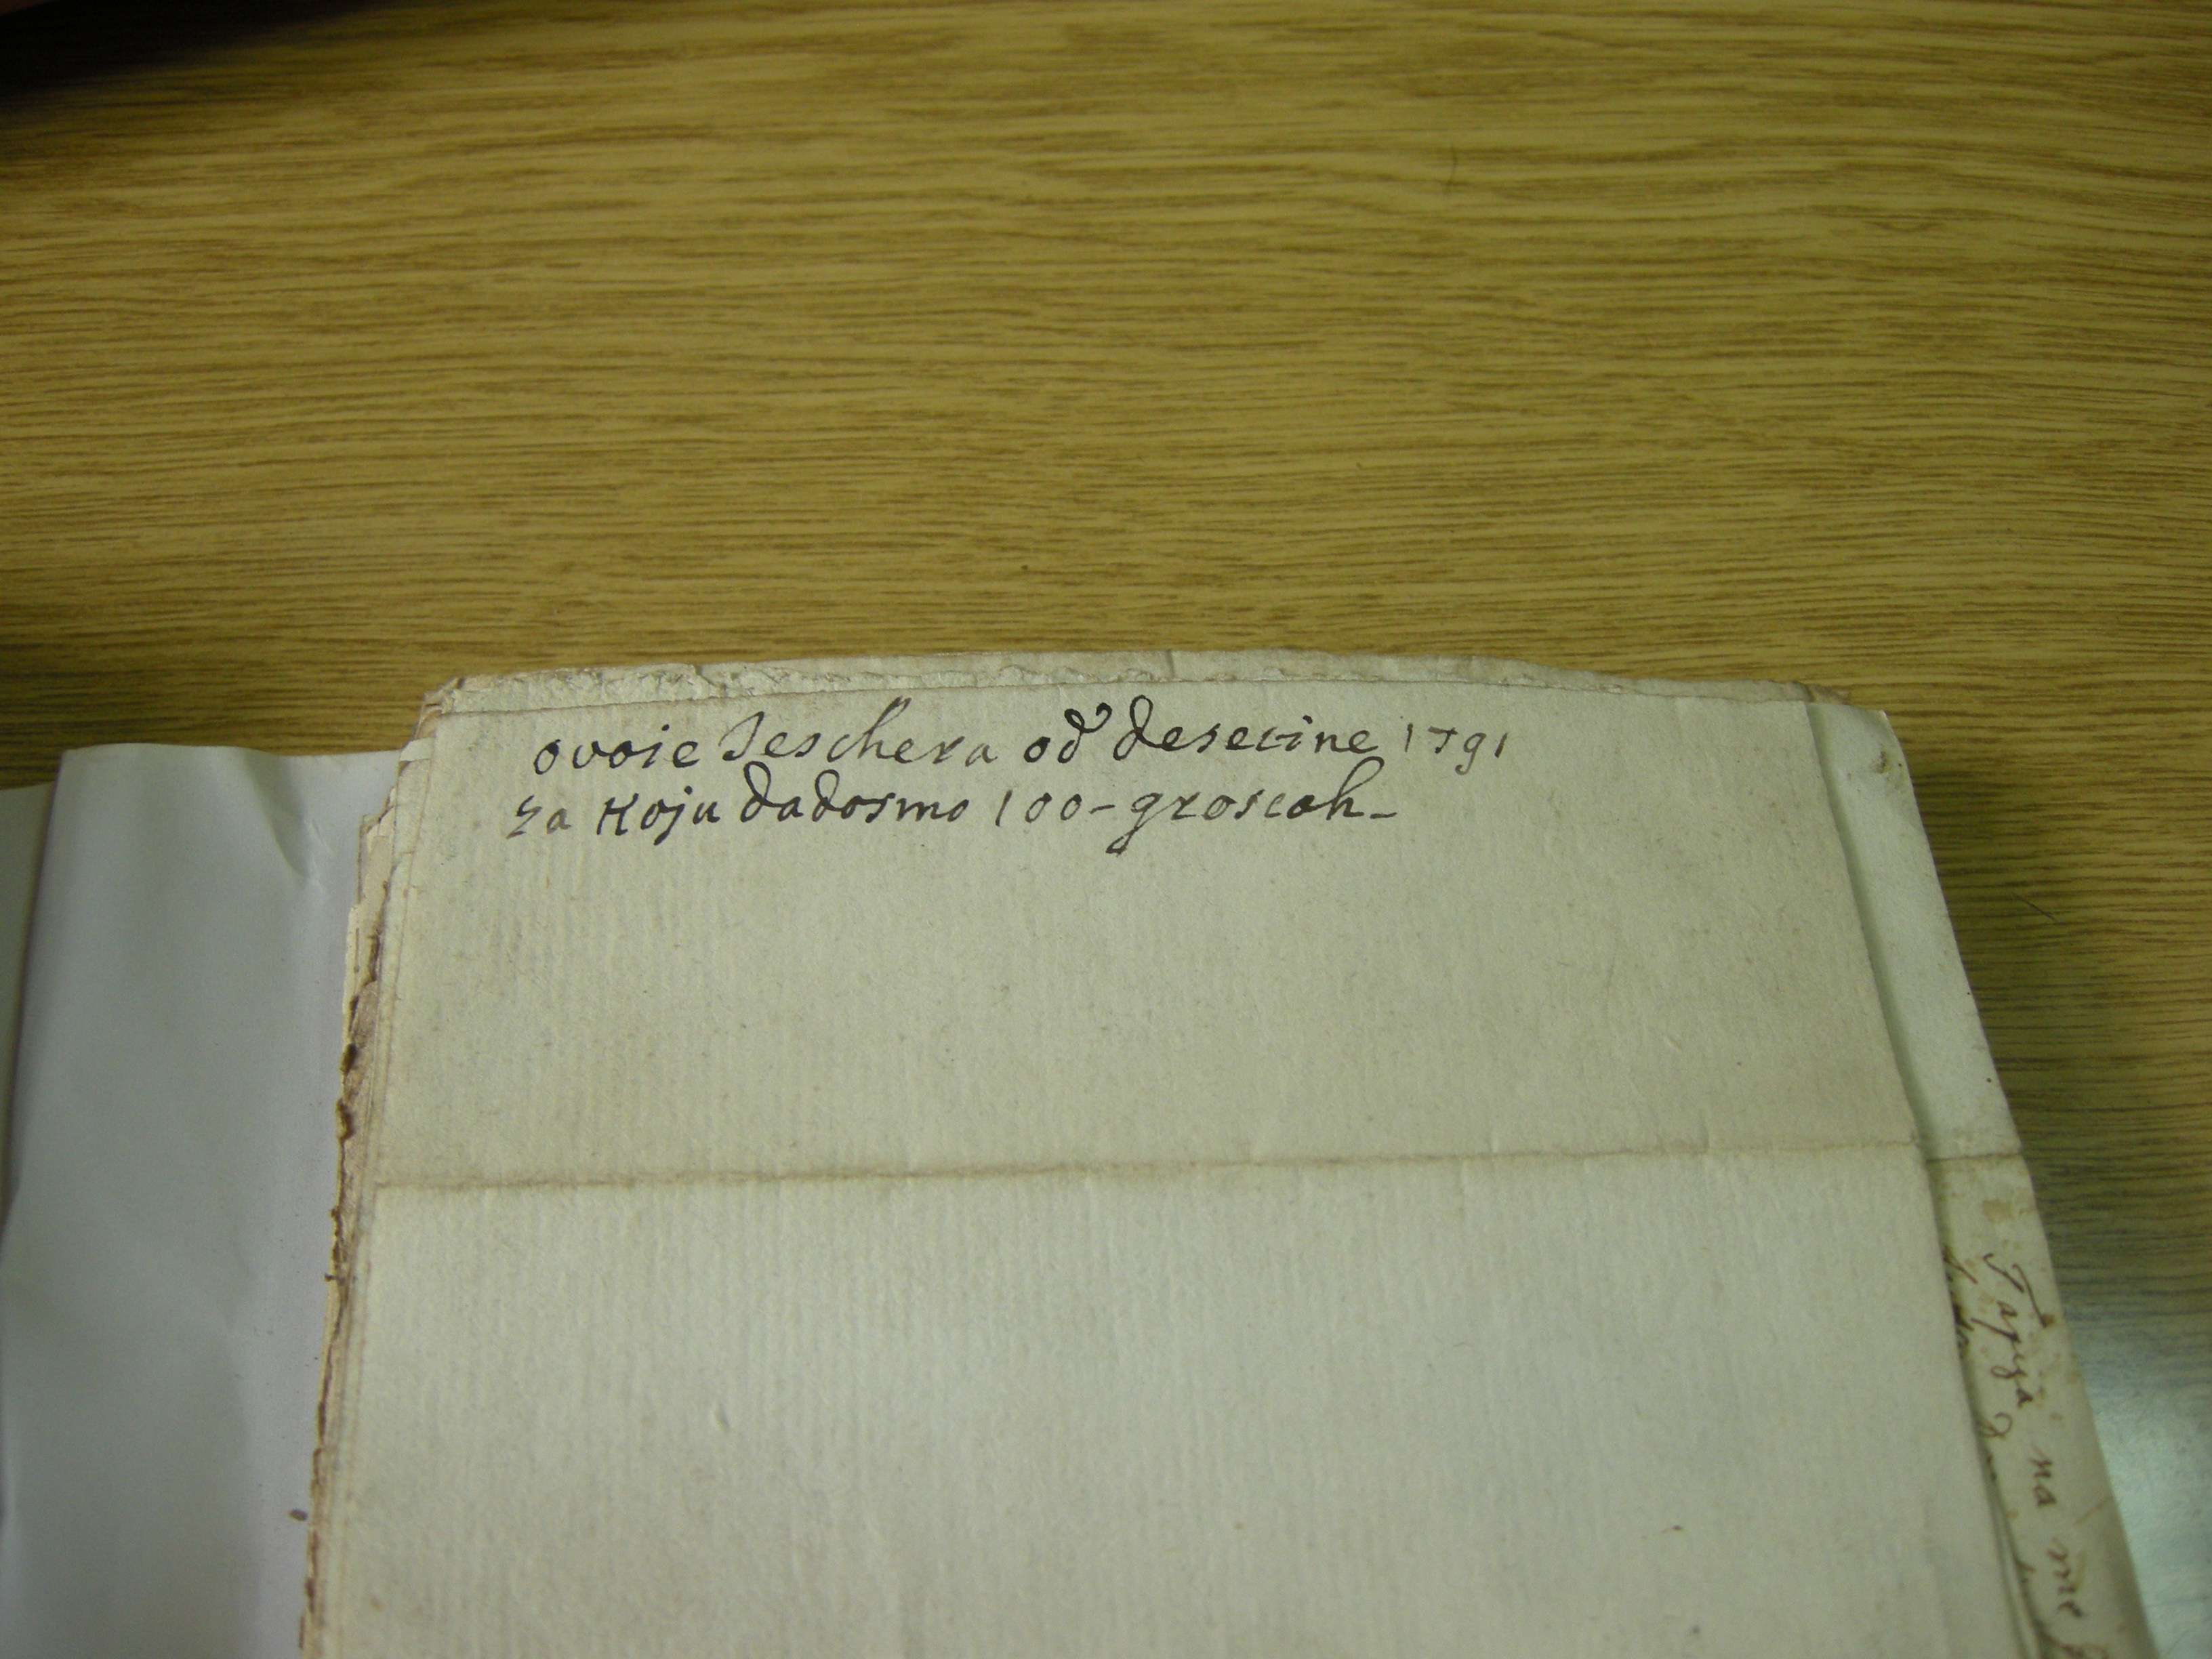 ovoie Teschera od desetine 1791
za Koju dadosmo 100 - groscah -
Tapija na me